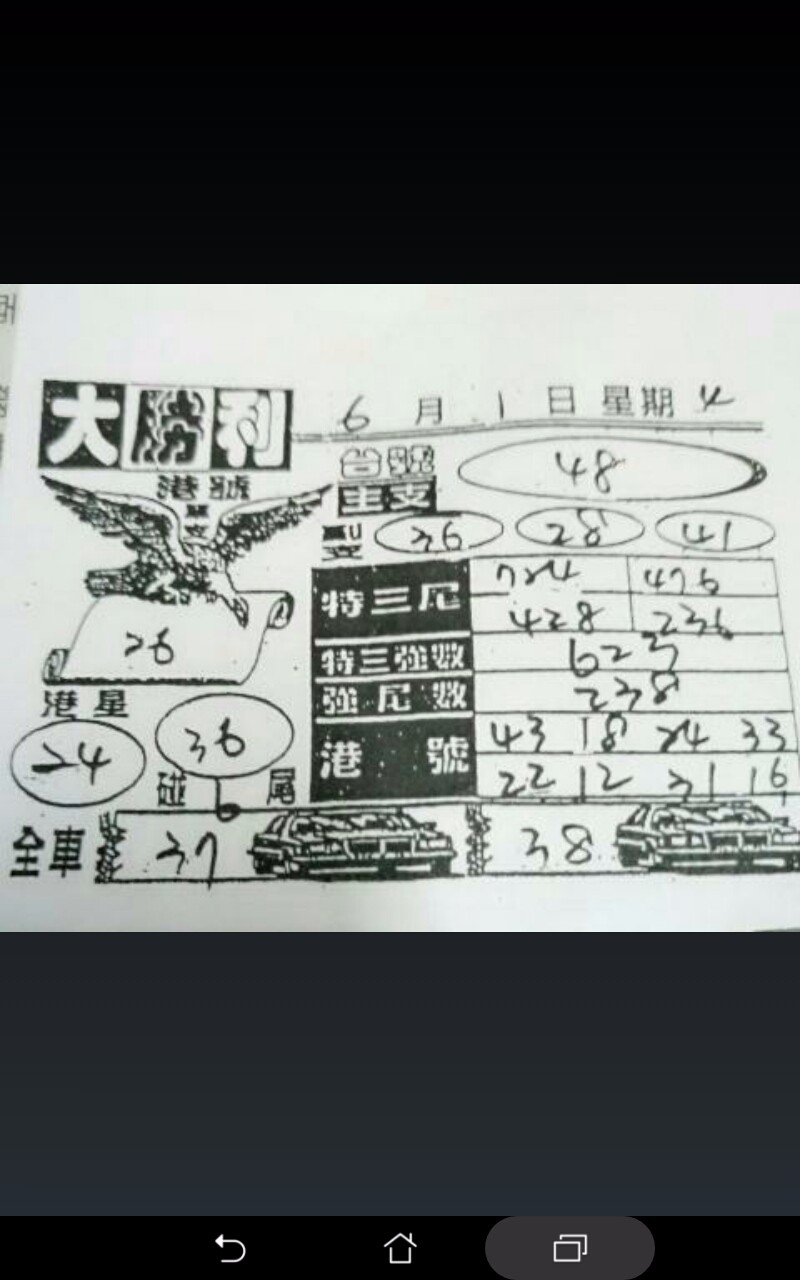 大勝利
6月1日星期4
台號 48
主支
港號
單支
副支 36 28 41
26
特三尾 724 476
428 236
特三強數 623
強尾數 238
港星
24
36
碰尾
港號 43 18 24 33
22 12 31 16
全車 37 38